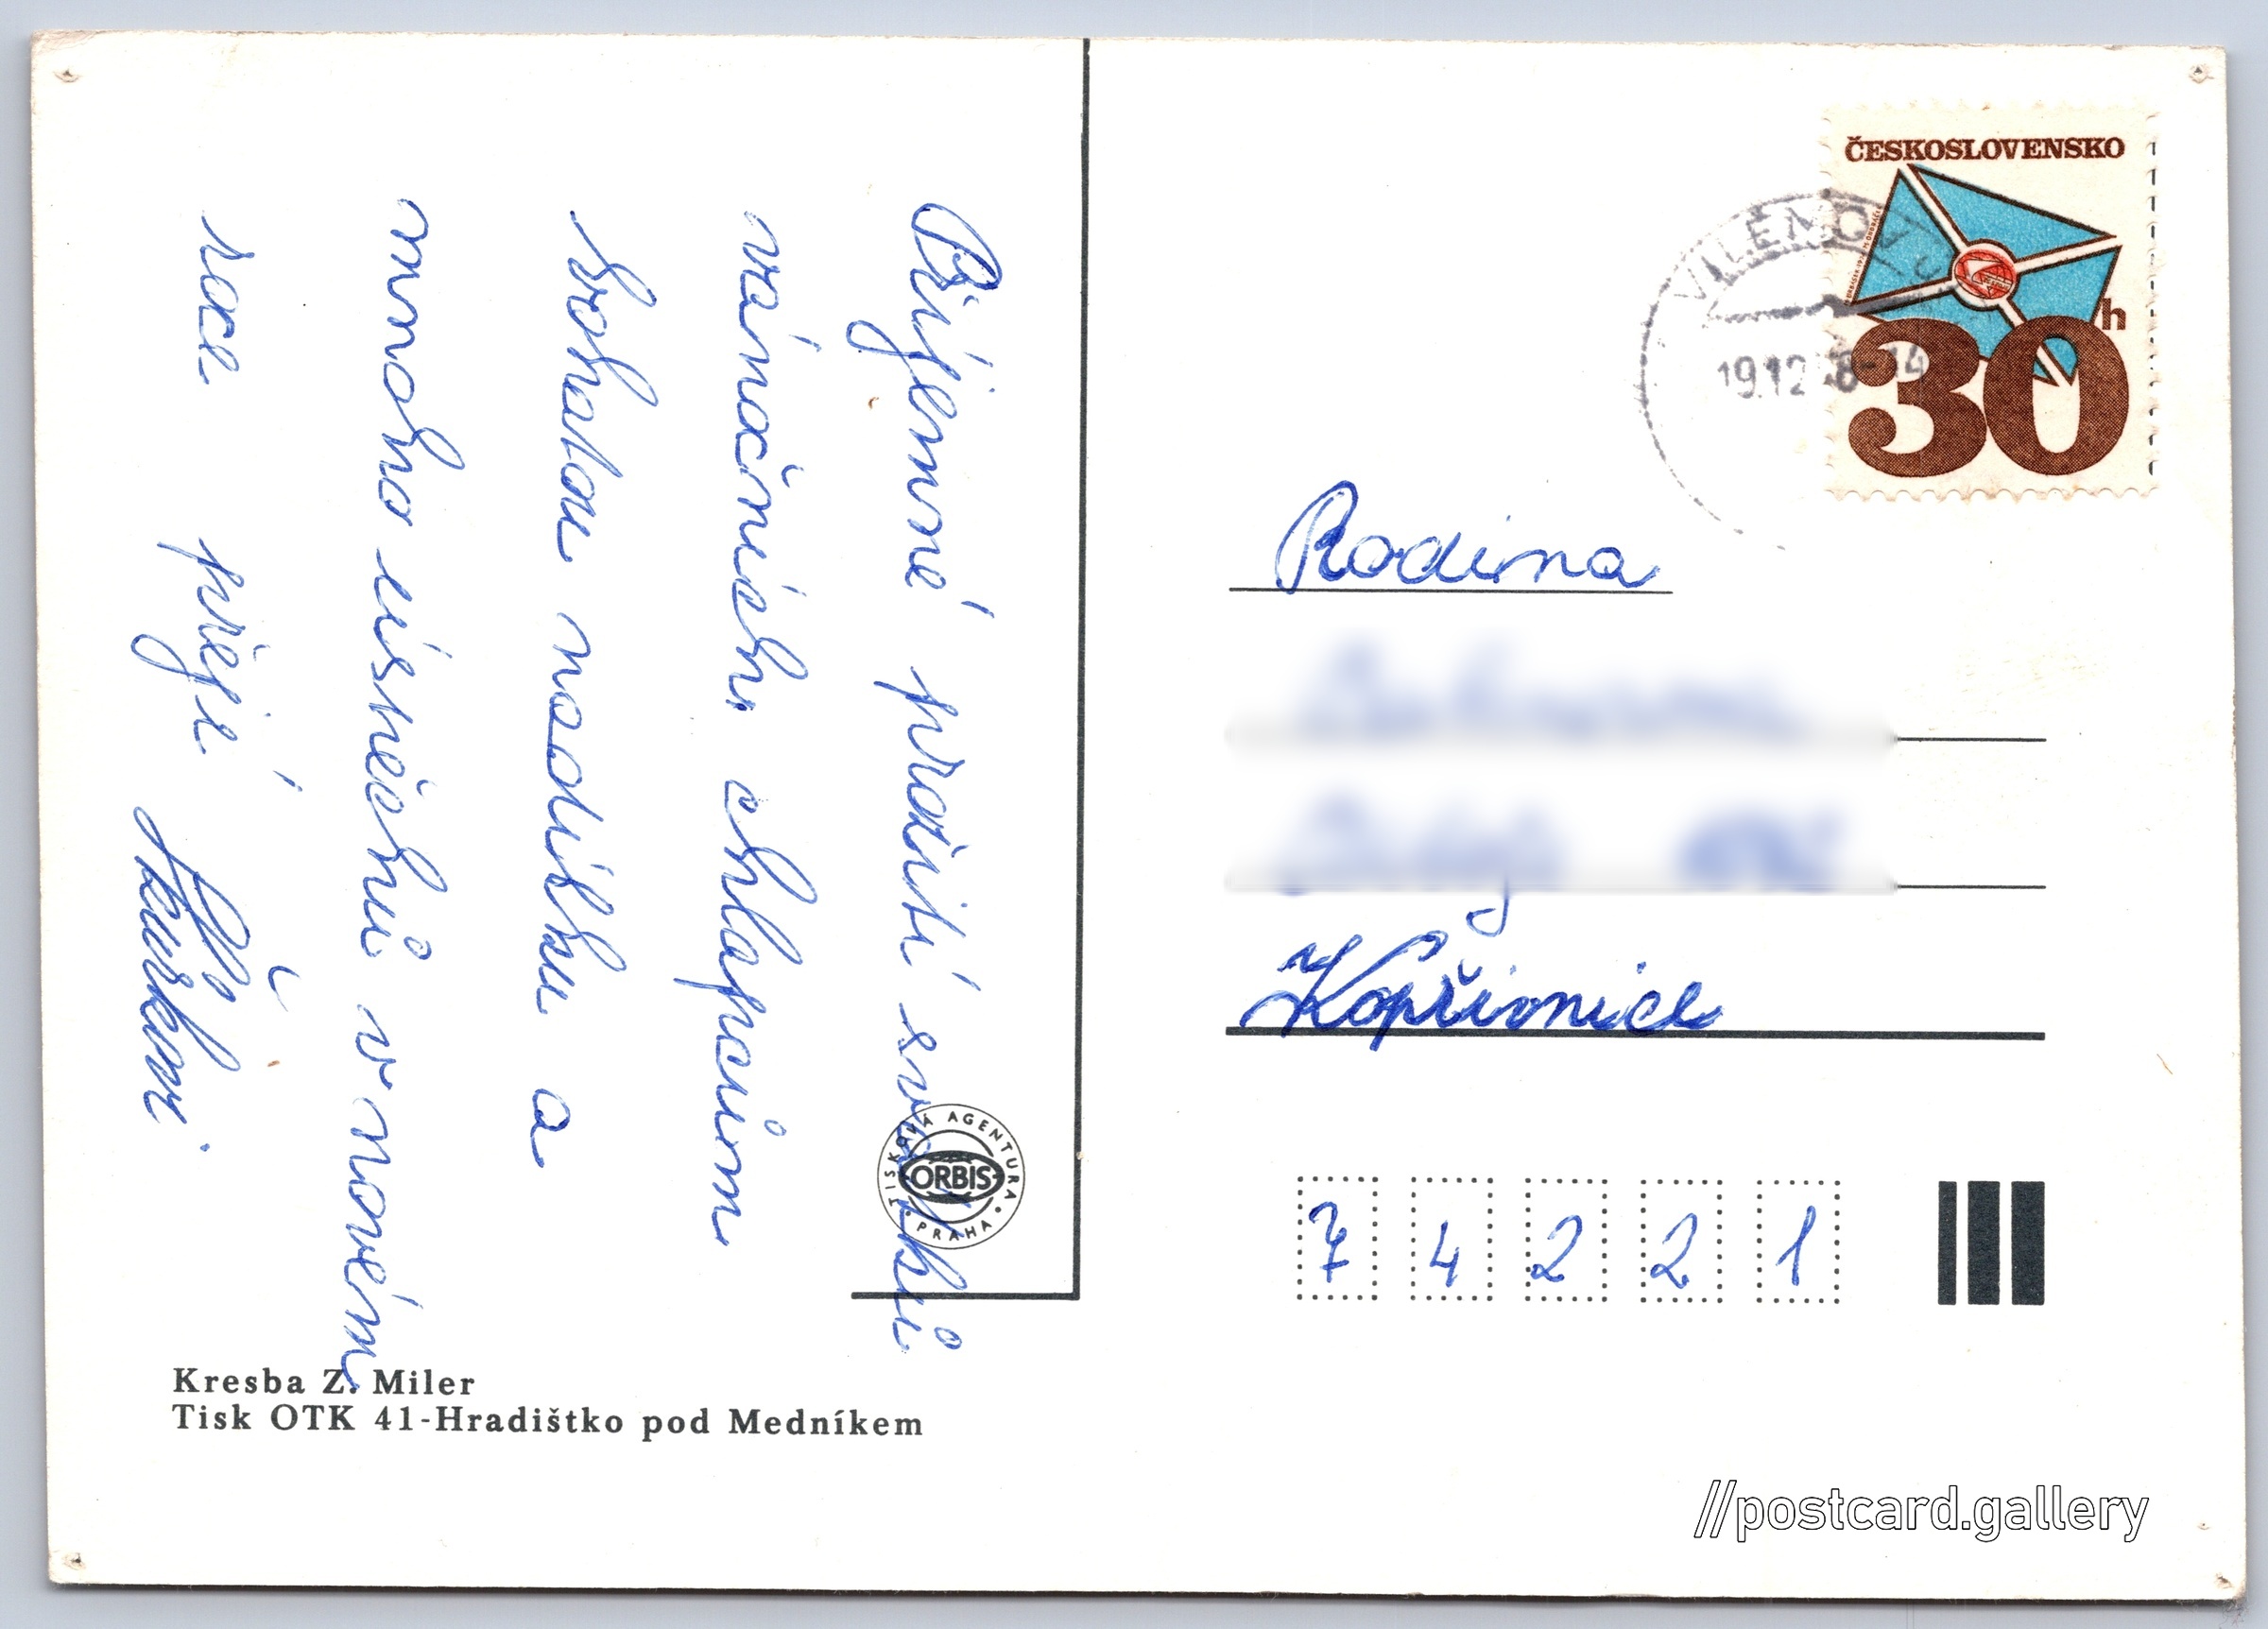 Příjemné prožití svátků
vánočních, chlapcům
bohatou nadílku a
mnoho úspěchů v novém
roce přejí
TISKOVÁ AGENTURA
ORBIS
PRAHA
Kresba Z. Miler
Tisk OTK 41-Hradištko pod Medníkem
ČESKOSLOVENSKO
30h
VILÉMOV U
19.12
Rodina
Kopřivnice
7 4 2 2 1
//postcard.gallery